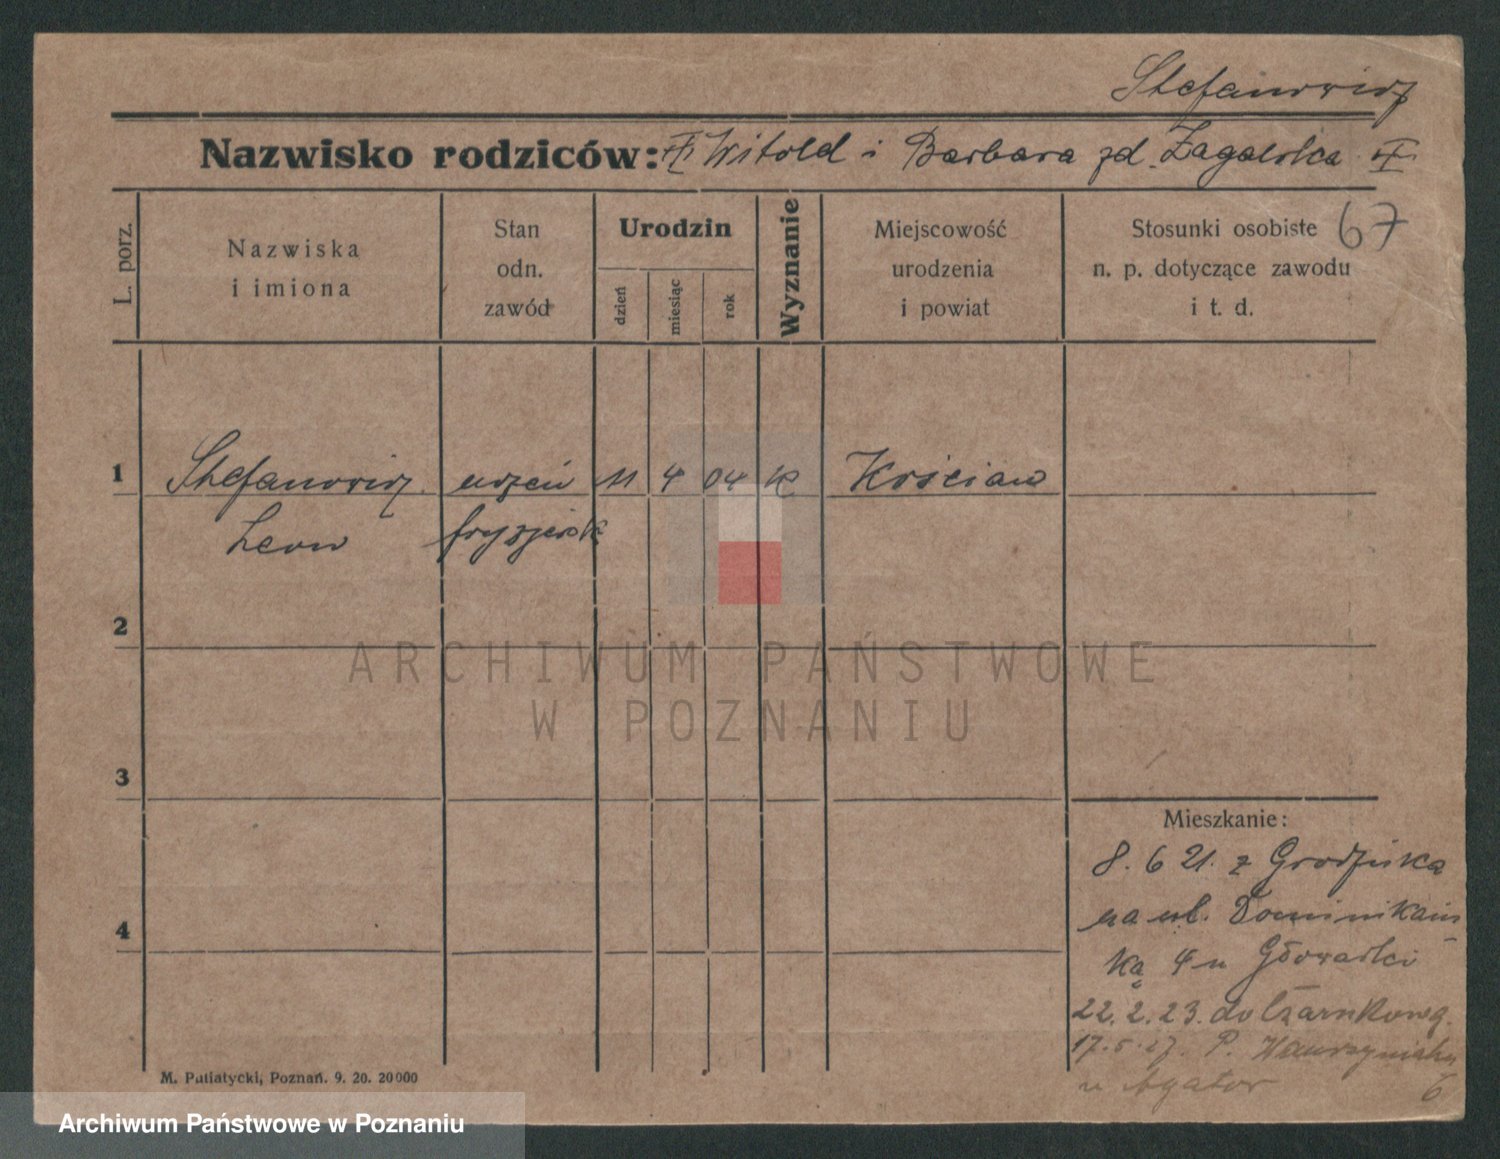 Stefanowicz
Nazwisko rodziców: Witold i Barbara zd. Zagaerska
67
L. porz.
Nazwiska
i imiona
Stan
odn.
zawód
Urodzin
dzień
miesiąc
rok
Wyznanie
Miejscowość
urodzenia
i powiat
Stosunki osobiste
n. p. dotyczące zawodu
i t. d.
1 Stefanowicz uczeń 11 4 04 k Kościan
Leon fryzjersk
2
ARCHIWUM PAŃSTWOWE
W POZNANIU
3
Mieszkanie:
8. 6 21. z Grodziska
4
na ul. Dominikań
ką 4 u
22. 2. 23. do Czarnkowa.
17. 5. 27. P. Wawrzyniaka
u 6
M. Putiatycki, Poznań. 9. 20. 20 000
Archiwum Państwowe w Poznaniu